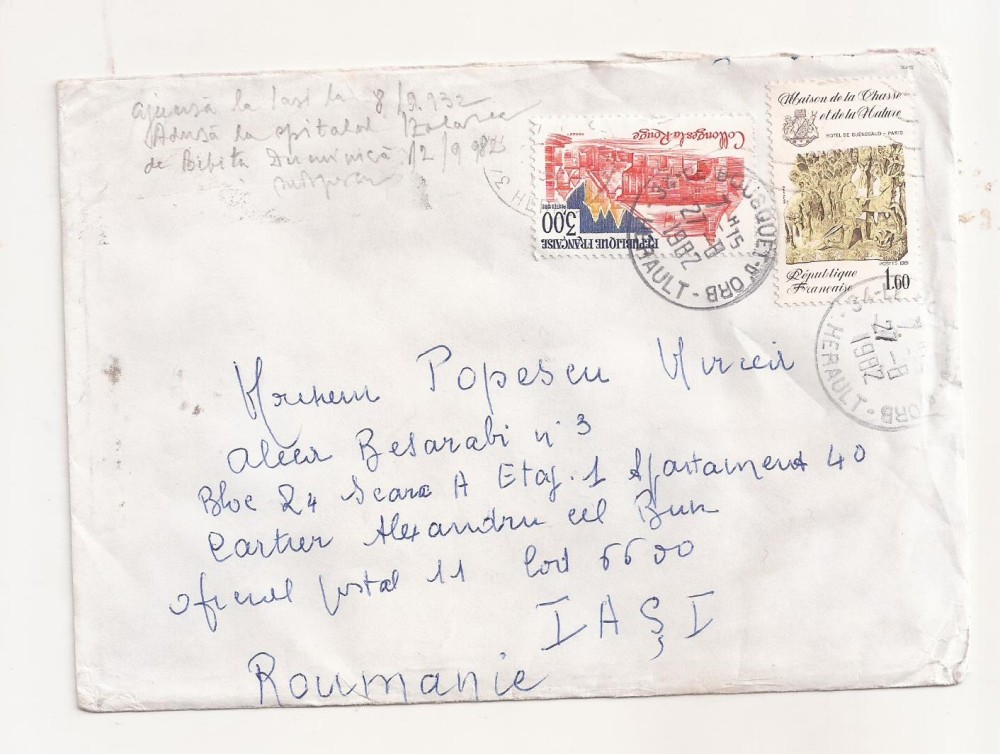 ajunsă la Iasi la 8/9.932
Adusă la spitalul
de Bibita Duminică 12/9 982
Collonges-la-Rouge
3.00
RÉPUBLIQUE FRANÇAISE
Maison de la Chasse
et de la Nature
HOTEL DE GUÉNÉGAUD - PARIS
République
Française
1.60
BOUSQUET-D'ORB
7 H 15
27 -8
1982
HERAULT
27 -8
1982
HERAULT
D'ORB
Popescu Mircea
aleea Besarabi n° 3
Bloc 24 Scara A Etaj. 1 Apartament 40
Cartier Alexandru cel Bun
oficiul postal 11 Cod 6600
IAŞI
Roumanie